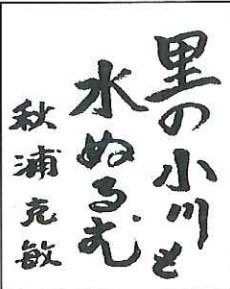 里の小川も
水ぬるむ
秋浦克敏